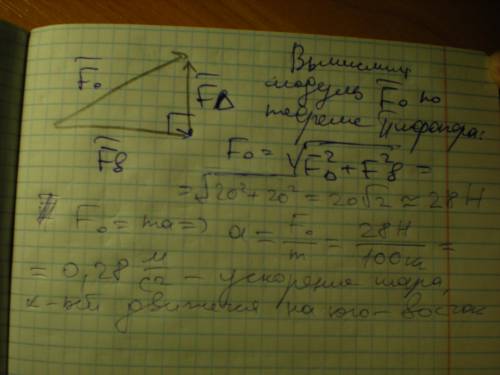 F₀
F_D
F_B
Вычислим
модуль F₀ по
теореме Пифагора:
F₀ = √F_D² + F_B² =
= √20² + 20² = 20√2 ≈ 28 Н
F₀ = ma ⇒ a = F₀/m = 28Н/100кг =
= 0,28 м/с² – ускорение шара,
к-рый движется на юго-восток